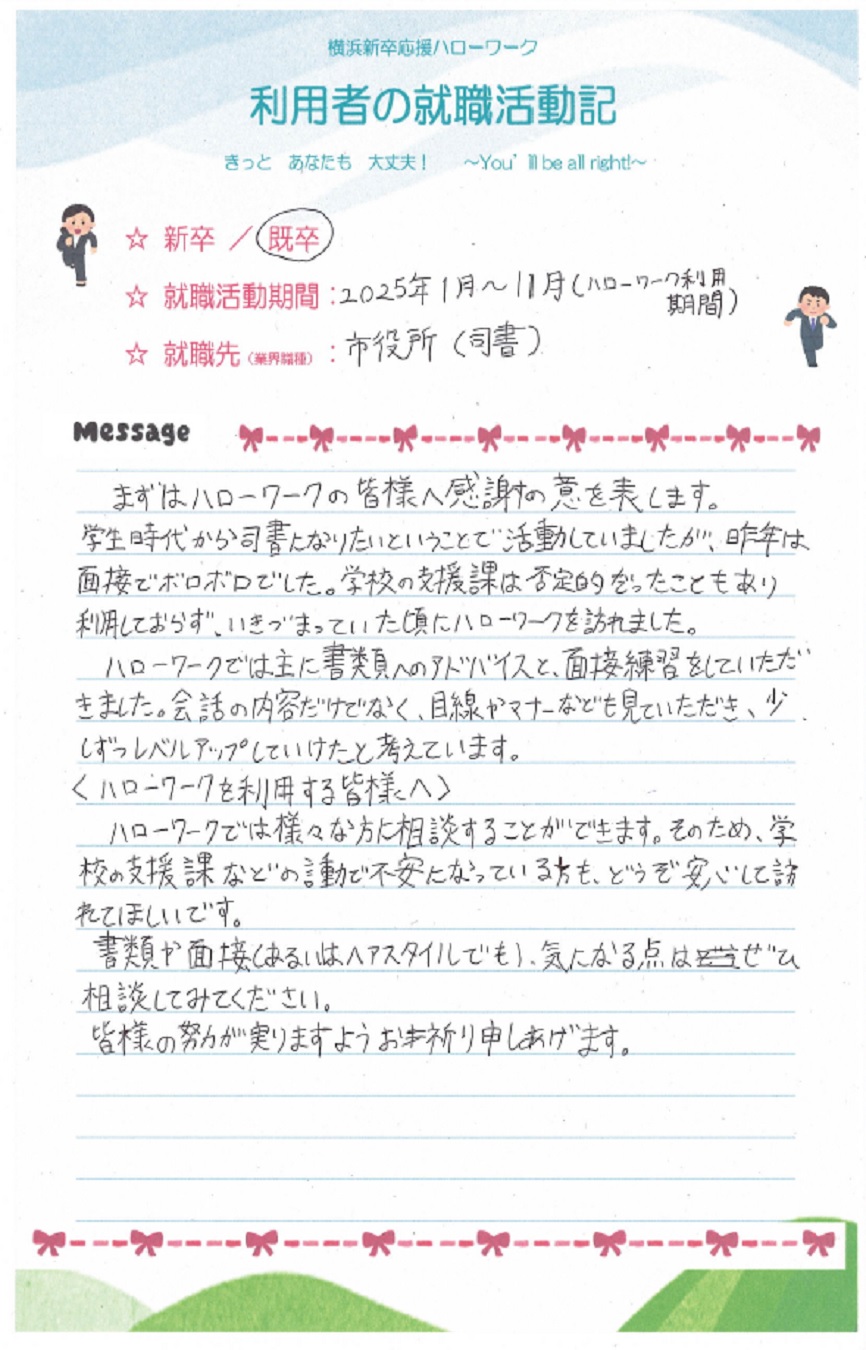 横浜新卒応援ハローワーク
利用者の就職活動記
きっと あなたも 大丈夫! ~You'll be all right!~
☆ 新卒 / 既卒
☆ 就職活動期間:2025年1月~11月(ハローワーク利用
期間)
☆ 就職先(業界職種):市役所(司書)
Message
まずはハローワークの皆様へ感謝の意を表します。
学生時代から司書になりたいということで活動していましたが、昨年は
面接でボロボロでした。学校の支援課は否定的だったこともあり
利用しておらず、いきづまっていた頃にハローワークを訪れました。
ハローワークでは主に書類へのアドバイスと、面接練習をしていただ
きました。会話の内容だけでなく、目線やマナーなども見ていただき、少
しずつレベルアップしていけたと考えています。
<ハローワークを利用する皆様へ>
ハローワークでは様々な方に相談することができます。そのため、学
校の支援課などの言動で不安になっている方も、どうぞ安心して訪
れてほしいです。
書類や面接(あるいはヘアスタイルでも)、気になる点はぜひ
相談してみてください。
皆様の努力が実りますようお祈り申しあげます。